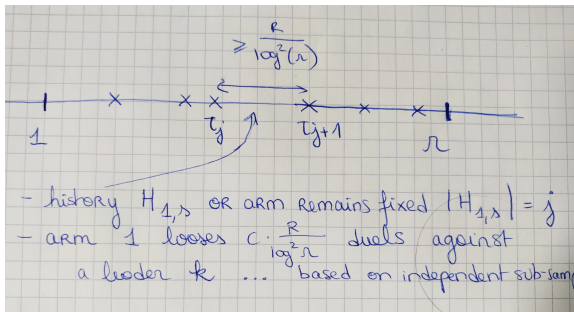 ≥ R / log²(r)
τj τj+1
1 r
- history H1,s OR arm Remains fixed |H1,s| = j
- arm 1 looses C. R / log² r duels against
a leader k ... based on independent sub-sam